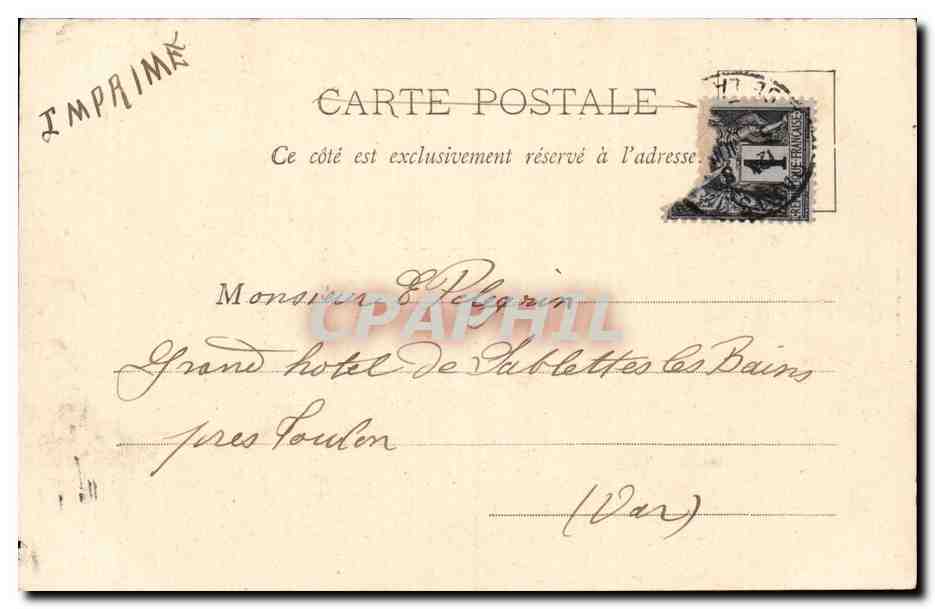 IMPRIMÉ
CARTE POSTALE
Ce côté est exclusivement réservé à l'adresse.
1
REPUBLIQUE FRANÇAISE
Monsieur E Pelegrin
CPAPHIL
Grand hotel de Sablettes les Bains
pres Toulon
(Var)